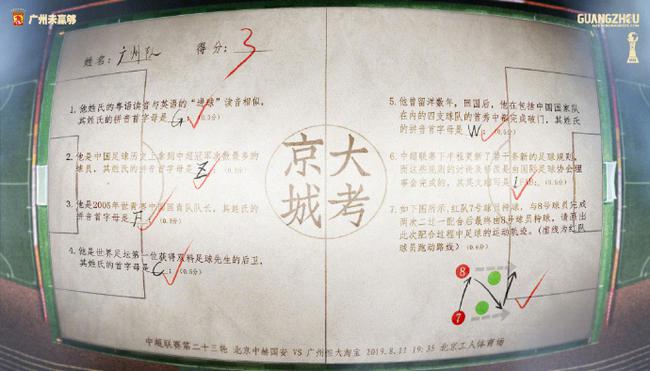 广州未赢够
GUANGZHOU
姓名：广州队 得分：3
1. 他姓氏的粤语读音与英语的“进球”读音相似，
其姓氏的拼音首字母是G。(0.5分)
2. 他是中国足球历史上拿到中超冠军次数最多的
球员，其姓氏的拼音首字母是Z。(0.5分)
3. 他是2005年世青赛中国国青队队长，其姓氏的
拼音首字母是F。(0.5分)
4. 他是世界足坛第一位获得双料足球先生的后卫，
其姓氏的首字母是C。(0.5分)
京 大
城 考
5. 他曾留洋数年，回国后，他在包括中国国家队
在内的四支球队的首秀中都完成破门，其姓氏
的拼音首字母是W。(0.5分)
6. 中超联赛下半程更新了若干条新的足球规则，
而这些规则的讨论及修改是由国际足球协会理
事会完成的，其英文缩写是
7. 如下图所示，红队7号球员持球，与8号球员完成
两次二过一配合后最终由8号球员持球，请画出
此次配合过程中足球的运动轨迹。(虚线为红队
球员跑动路线)
8
7
中超联赛第二十三轮 北京中赫国安 VS 广州恒大淘宝 2019.8.11 19:35 北京工人体育场